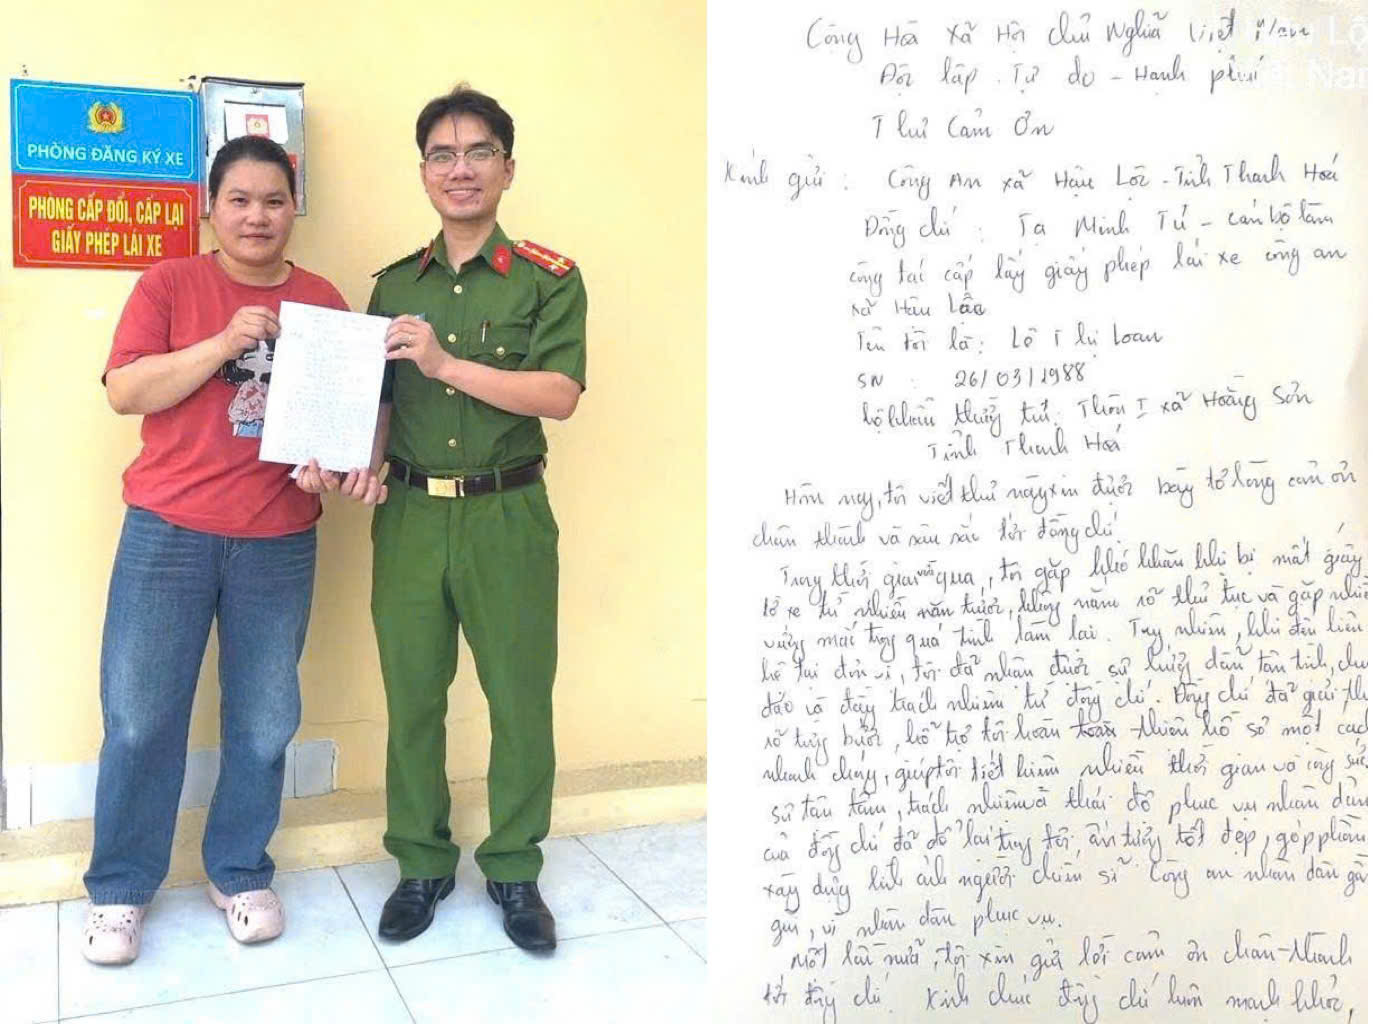 PHÒNG ĐĂNG KÝ XE
PHÒNG CẤP ĐỔI, CẤP LẠI
GIẤY PHÉP LÁI XE
Cộng Hoà Xã Hội chủ Nghĩa Việt Nam
Độc lập - Tự do - Hạnh phúc
Thư Cảm Ơn
Kính gửi : Công An xã Hậu Lộc - Tỉnh Thanh Hoá
Đồng chí : Tạ Minh Tú - Cán bộ làm
công tác cấp lấy giấy phép lái xe công an
xã Hậu Lộc
Tên tôi là: Lê Thị Loan
SN : 26/03/1988
hộ khẩu thường trú: Thôn I xã Hoằng Sơn
Tỉnh Thanh Hoá
Hôm nay, tôi viết thư này xin được bày tỏ lòng cảm ơn
chân thành và sâu sắc tới đồng chí.
Trong thời gian vừa qua, tôi gặp khó khăn khi bị mất giấy
tờ xe từ nhiều năm trước, không nắm rõ thủ tục và gặp nhiều
vướng mắc trong quá trình làm lại. Tuy nhiên, khi đến liên
hệ tại đơn vị, tôi đã nhận được sự hướng dẫn tận tình, chu
đáo và đầy trách nhiệm từ đồng chí. Đồng chí đã giải
rõ từng bước, hỗ trợ tôi hoàn thiện hồ sơ một các
nhanh chóng, giúp tôi tiết kiệm nhiều thời gian và công sức
sự tận tâm, trách nhiệm và thái độ phục vụ nhân dân
của đồng chí đã để lại trong tôi ấn tượng tốt đẹp, góp phần
xây dựng hình ảnh người chiến sĩ Công an nhân dân gần
gũi, vì nhân dân phục vụ.
Một lần nữa, tôi xin gửi lời cảm ơn chân thành
tới đồng chí. Kính chúc đồng chí luôn mạnh khỏe,